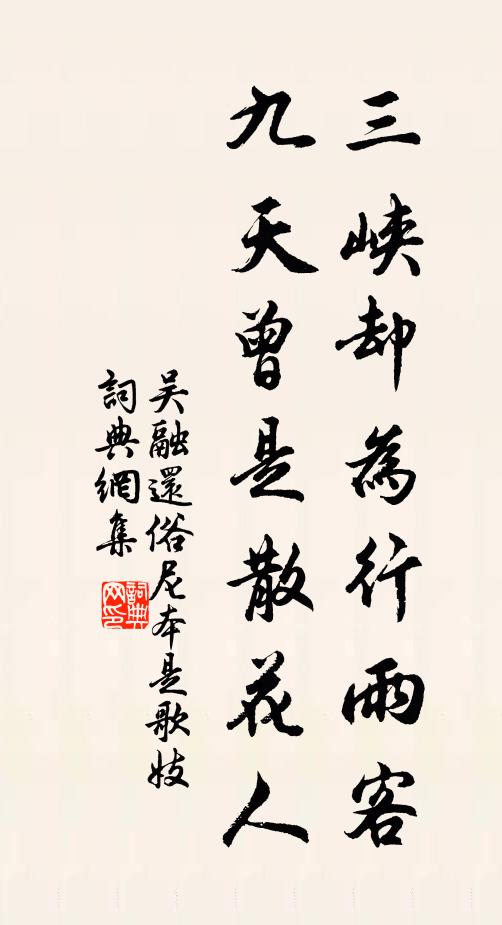 三峽却為行雨客
九天曾是散花人
吴融還俗尼本是歌妓
詞典網集
詞典网印